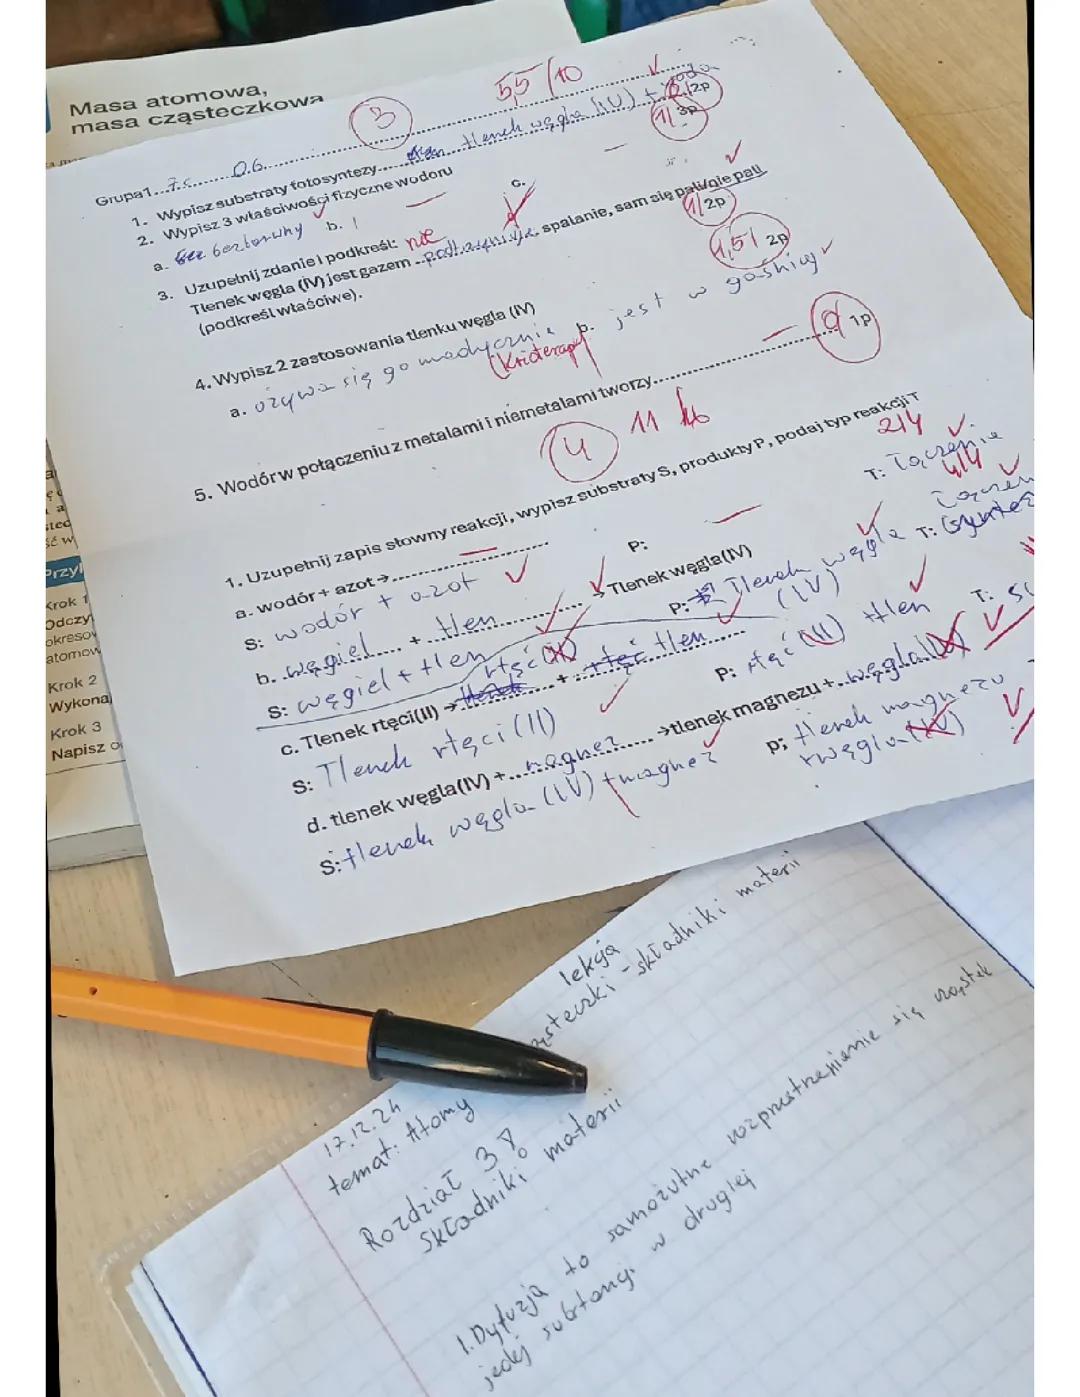 Masa atomowa,
masa cząsteczkowa
3
5,5/10
Grupa 1...7c......06
1. Wypisz substraty fotosyntezy... tlenek węgla (IV) + woda /2p
2. Wypisz 3 właściwości fizyczne wodoru 1/3p
a. bezbarwny b. c.
3. Uzupełnij zdanie i podkreśl:
nie
Tlenek węgla (IV) jest gazem ..podtrzymuje. spalanie, sam się pali/nie pali 1/2p
(podkreśl właściwe).
4. Wypisz 2 zastosowania tlenku węgla (IV) 1,5/2p
a. używa się go medycznie b. jest w gaśnicy
(krioterapii)
5. Wodór w połączeniu z metalami i niemetalami tworzy.... 0/1p
4
11
1. Uzupełnij zapis słowny reakcji, wypisz substraty S, produkty P, podaj typ reakcji T
a. wodór + azot →.... 2/4
S: wodór + azot P: T: Łączenie
4/4
b. ..węgiel..... + ..tlen........ → Tlenek węgla (IV)
S: węgiel + tlen P: Tlenek węgla (IV) T:
rtęć
c. Tlenek rtęci(II) → ..... + ..... tlen
S: Tlenek rtęci (II) P: rtęć (II) tlen T:
d. tlenek węgla(IV) +..magnez..... →tlenek magnezu +..węgla
S: tlenek węgla (IV) + magnez P: tlenek magnezu
+ węgla (IV)
Krok 1
Odczy
okresow
atomow
Krok 2
Wykona
Krok 3
Napisz o
lekcja
17.12.24
temat: Atomy cząsteczki - składniki materii
Rozdział 3
składniki materii
1. Dyfuzja to samożutne rozprzestrzenienie się cząstek
jedej substancji w drugiej